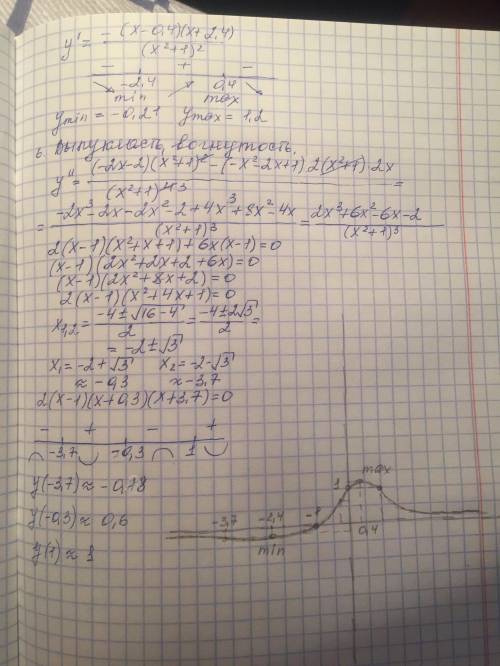 y' = -(x-0,4)(x+2,4) / (x²+1)²
- + -
-2,4 0,4
min max
y min = -0,21 y max = 1,2
6. Выпуклость, вогнутость.
y'' = ((-2x-2)(x²+1)² - (-x²-2x+1) 2(x²+1)·2x) / (x²+1)⁴ ³ =
= (-2x³-2x-2x²-2+4x³+8x²-4x) / (x²+1)³ = (2x³+6x²-6x-2) / (x²+1)³
2(x-1)(x²+x+1)+6x(x-1)=0
(x-1)(2x²+2x+2+6x)=0
(x-1)(2x²+8x+2)=0
2(x-1)(x²+4x+1)=0
x₁,₂ = (-4±√16-4) / 2 = (-4±2√3) / 2 =
= -2±√3
x₁=-2+√3 x₂=-2-√3
≈ -0,3 ≈ -3,7
2(x-1)(x+0,3)(x+3,7)=0
- + - +
-3,7 -0,3 1
y(-3,7) ≈ -0,18
y(-0,3) ≈ 0,6
y(1) ≈ 1
max
1
-3,7 -2,4 -1
min 0,4